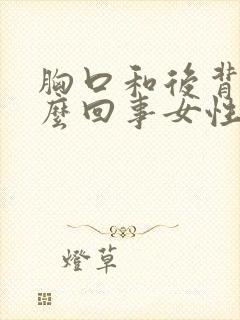 胸口和後背
麼回事女性
燈草